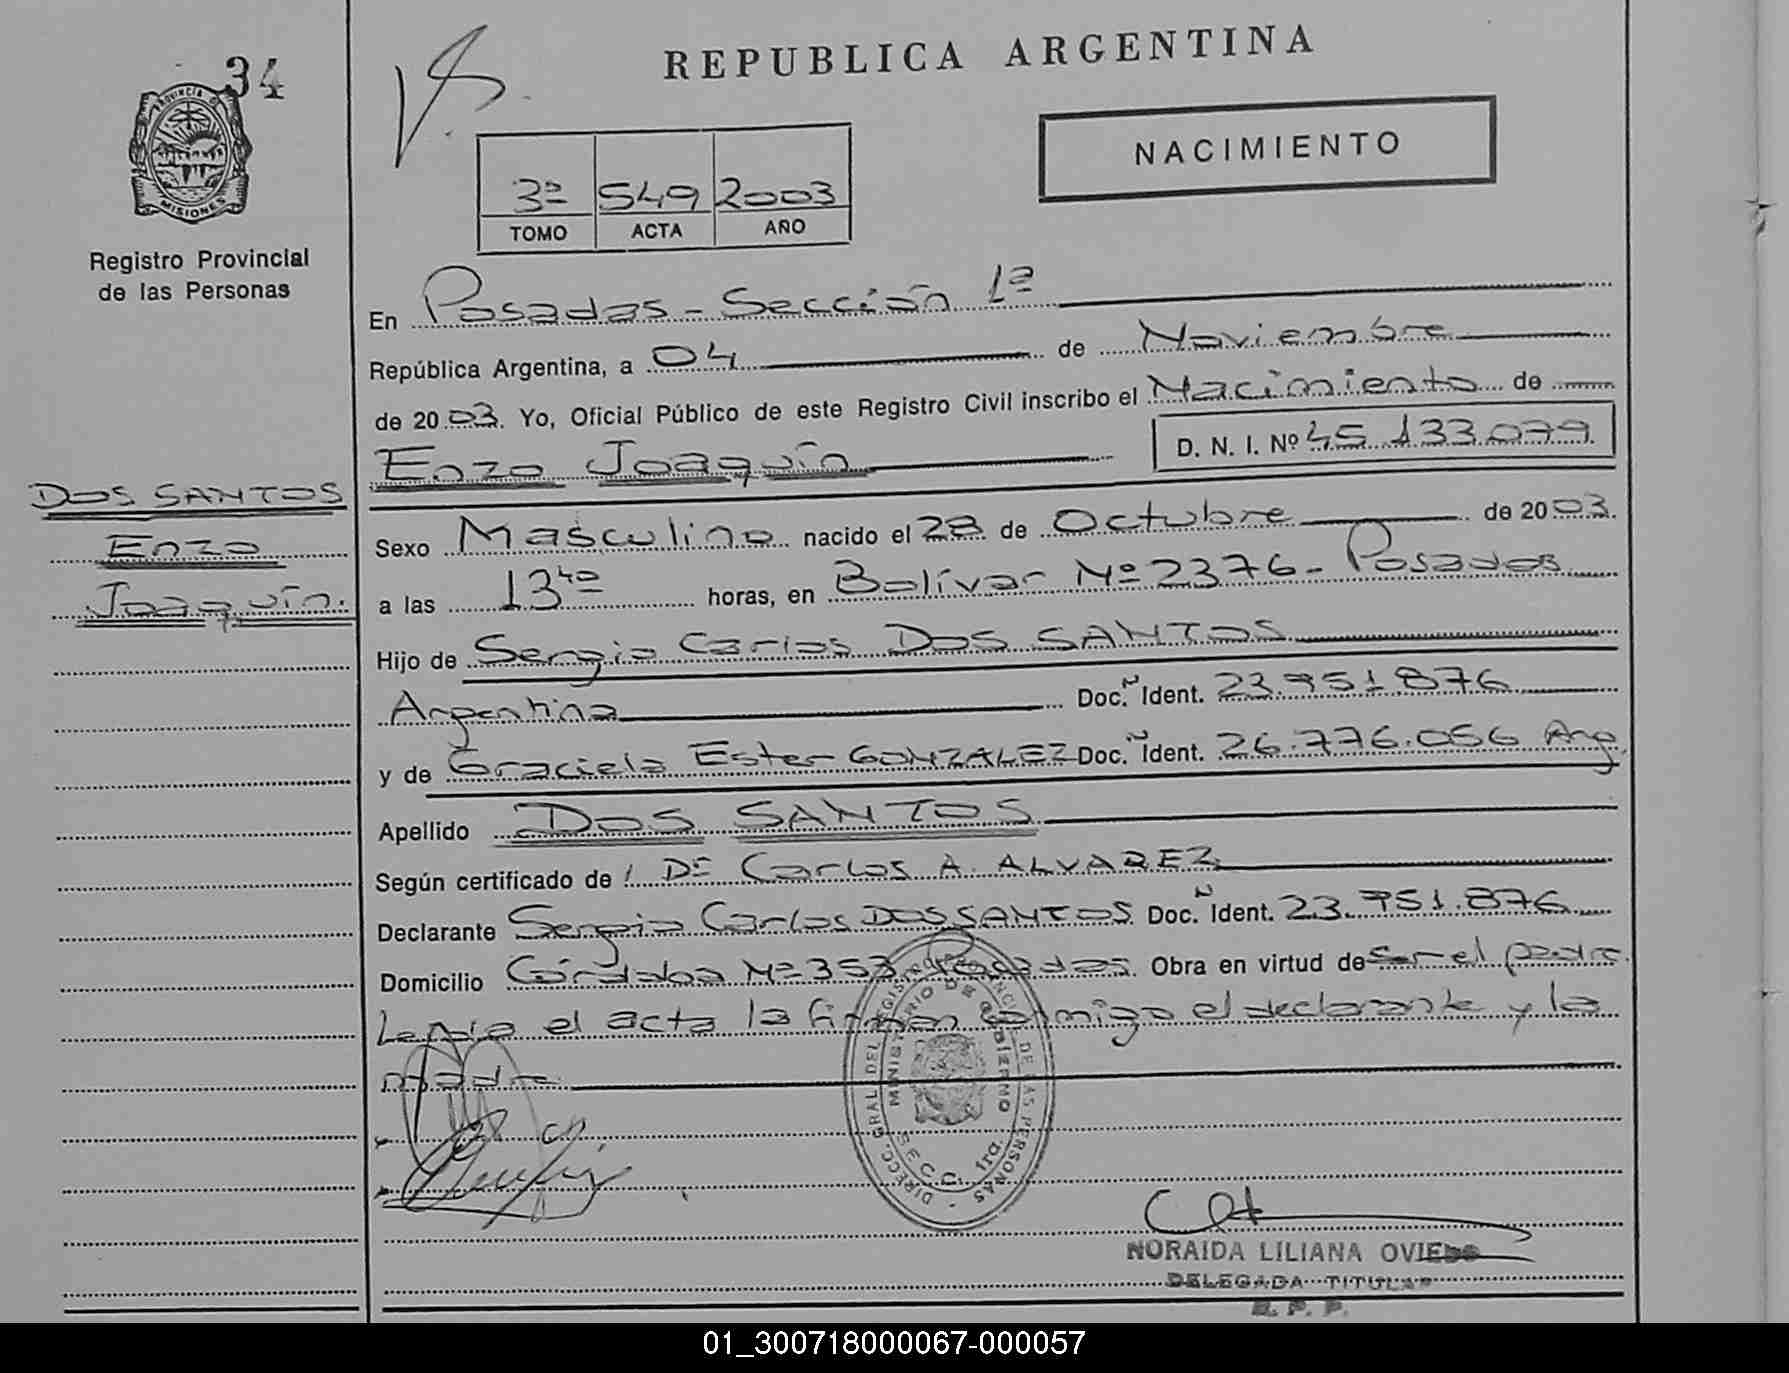 34
REPUBLICA ARGENTINA
PROVINCIA DE
MISIONES
Registro Provincial
de las Personas
NACIMIENTO
3º 549 2003
TOMO ACTA AÑO
En Posadas - Sección 1ª
República Argentina, a 04 de Noviembre
de 2003. Yo, Oficial Público de este Registro Civil inscribo el Nacimiento de
Enzo Joaquín D. N. I. Nº 45.133.079
DOS SANTOS
Enzo
Joaquín.
Sexo Masculino nacido el 28 de Octubre de 2003.
a las 13⁴⁰ horas, en Bolívar Nº 2376 - Posadas
Hijo de Sergio Carlos DOS SANTOS
Argentina Doc. Ñ Ident. 23.951.876
y de Graciela Ester GONZALEZ Doc. Ñ Ident. 26.776.056 Arg.
Apellido DOS SANTOS
Según certificado de Carlos A. ALVAREZ
Declarante Sergio Carlos DOS SANTOS Doc. Ñ Ident. 23.951.876
Domicilio Córdoba Nº 353 Posadas. Obra en virtud de ser el padre.
Leída el acta la firman conmigo el declarante y la
madre
DIRECC. GRAL. DEL REGISTRO PROVINCIAL DE LAS PERSONAS
MINISTERIO DE GOBIERNO
SECC. 1ra.
NORAIDA LILIANA OVIEDO
DELEGADA TITULAR
R. P. P.
01_300718000067-000057